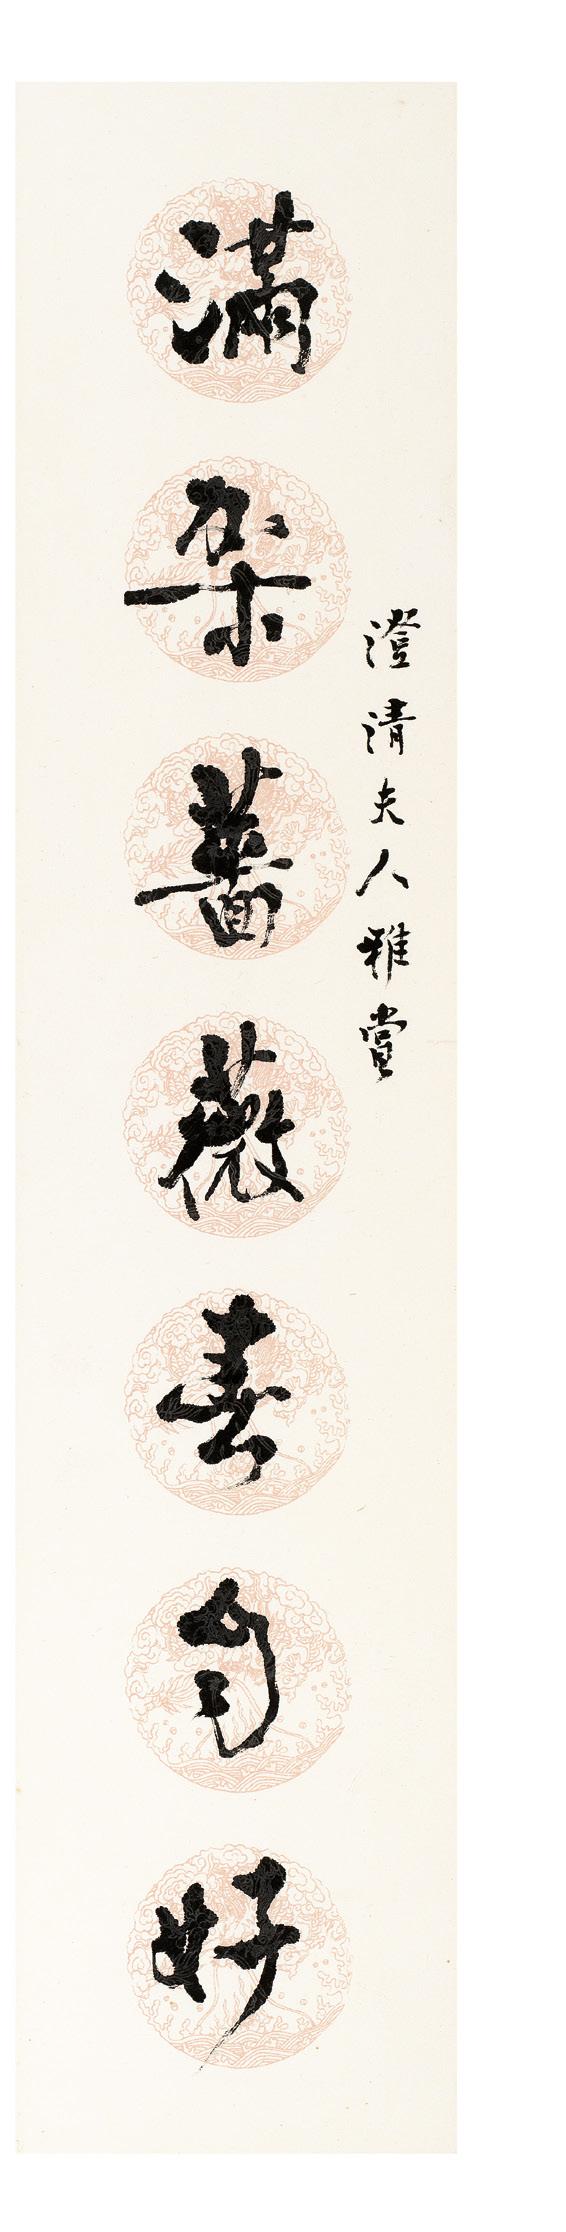 澄清夫人雅賞
滿架薔薇春自好